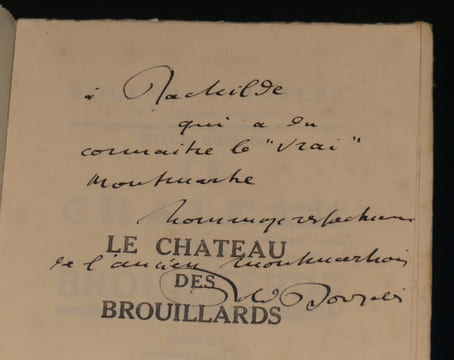 à Rachilde
qui a du
connaitre le "vrai"
Montmartre
hommage respectueux
LE CHATEAU
de l'ancien Montmartrois
DES
BROUILLARDS